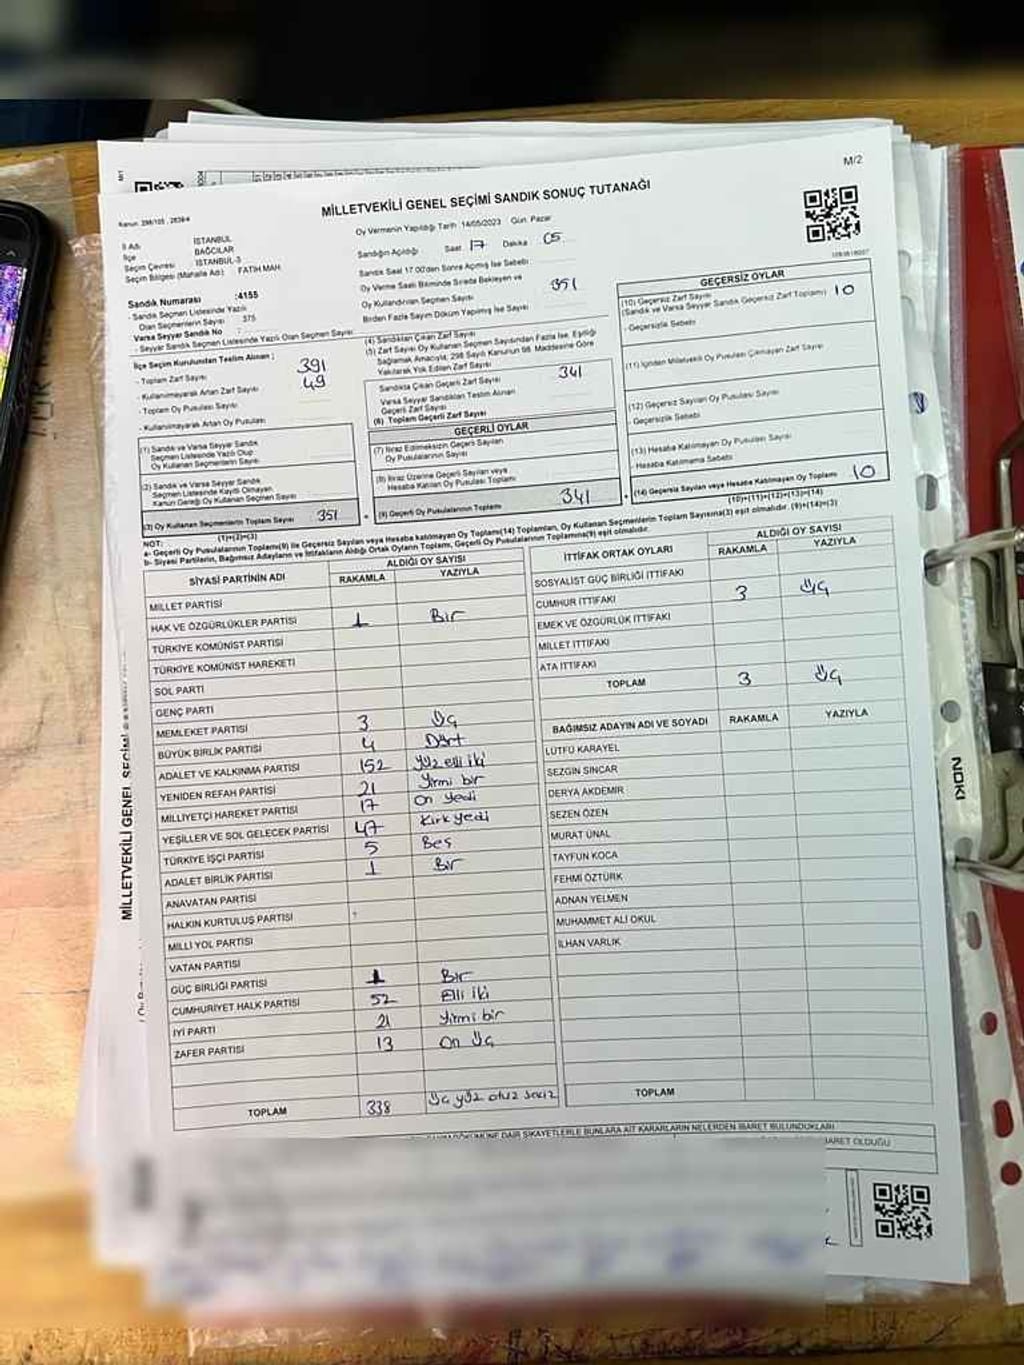 M/2
MİLLETVEKİLİ GENEL SEÇİMİ SANDIK SONUÇ TUTANAĞI
İl Adı İSTANBUL
İlçe BAĞCILAR
Seçim Çevresi İSTANBUL-3
Seçim Bölgesi (Mahalle Adı) FATİH MAH
Sandık Numarası :4155
- Sandık Seçmen Listesinde Yazılı
Olan Seçmenlerin Sayısı : 375
Varsa Seyyar Sandık No :
- Seyyar Sandık Seçmen Listesinde Yazılı Olan Seçmen Sayısı
Oy Vermenin Yapıldığı Tarih 14/05/2023 Gün: Pazar
Sandığın Açıldığı Saat 17 Dakika 05
Sandık Saat 17:00'den Sonra Açılmış İse Sebebi
Oy Verme Saati Bitiminde Sırada Bekleyen ve
Oy Kullandırılan Seçmen Sayısı 351
Birden Fazla Sayım Döküm Yapılmış İse Sayısı
İlçe Seçim Kurulundan Teslim Alınan ;
- Toplam Zarf Sayısı 391
- Kullanılmayarak Artan Zarf Sayısı 49
- Toplam Oy Pusulası Sayısı
- Kullanılmayarak Artan Oy Pusulası
(1) Sandık ve Varsa Seyyar Sandık
Seçmen Listesinde Yazılı Olup
Oy Kullanan Seçmenlerin Sayısı
(2) Sandık ve Varsa Seyyar Sandık
Seçmen Listesinde Kayıtlı Olmayan
Kanun Gereği Oy Kullanan Seçmen Sayısı
(3) Oy Kullanan Seçmenlerin Toplam Sayısı 351
(1)+(2)=(3)
(4) Sandıktan Çıkan Zarf Sayısı
(5) Zarf Sayısı Oy Kullanan Seçmen Sayısından Fazla İse, Eşitliği
Sağlamak Amacıyla, 298 Sayılı Kanunun 98. Maddesine Göre
Yakılarak Yok Edilen Zarf Sayısı
Sandıkta Çıkan Geçerli Zarf Sayısı 341
Varsa Seyyar Sandıktan Teslim Alınan
Geçerli Zarf Sayısı
(6) Toplam Geçerli Zarf Sayısı
GEÇERLİ OYLAR
(7) İtiraz Edilmeksizin Geçerli Sayılan
Oy Pusulalarının Sayısı
(8) İtiraz Üzerine Geçerli Sayılan veya
Hesaba Katılan Oy Pusulası Toplamı
(9) Geçerli Oy Pusulalarının Toplamı 341
GEÇERSİZ OYLAR
(10) Geçersiz Zarf Sayısı
(Sandık ve Varsa Seyyar Sandık Geçersiz Zarf Toplamı) 10
- Geçersizlik Sebebi
(11) İçinden Milletvekili Oy Pusulası Çıkmayan Zarf Sayısı
(12) Geçersiz Sayılan Oy Pusulası Sayısı
- Geçersizlik Sebebi
(13) Hesaba Katılmayan Oy Pusulası Sayısı
Hesaba Katılmama Sebebi
(14) Geçersiz Sayılan veya Hesaba Katılmayan Oy Toplamı 10
(10)+(11)+(12)+(13)=(14)
NOT:
a- Geçerli Oy Pusulalarının Toplamı(9) ile Geçersiz Sayılan veya Hesaba katılmayan Oy Toplamı(14) Toplamları, Oy Kullanan Seçmenlerin Toplam Sayısına(3) eşit olmalıdır. (9)+(14)=(3)
b- Siyasi Partilerin, Bağımsız Adayların ve İttifakların Aldığı Ortak Oyların Toplamı, Geçerli Oy Pusulalarının Toplamına(9) eşit olmalıdır.
SİYASİ PARTİNİN ADI ALDIĞI OY SAYISI
RAKAMLA YAZIYLA
MİLLET PARTİSİ
HAK VE ÖZGÜRLÜKLER PARTİSİ 1 Bir
TÜRKİYE KOMÜNİST PARTİSİ
TÜRKİYE KOMÜNİST HAREKETİ
SOL PARTİ
GENÇ PARTİ
MEMLEKET PARTİSİ 3 Üç
BÜYÜK BİRLİK PARTİSİ 4 Dört
ADALET VE KALKINMA PARTİSİ 152 Yüz elli iki
YENİDEN REFAH PARTİSİ 21 Yirmi bir
MİLLİYETÇİ HAREKET PARTİSİ 17 On yedi
YEŞİLLER VE SOL GELECEK PARTİSİ 47 Kırk yedi
TÜRKİYE İŞÇİ PARTİSİ 5 Beş
ADALET BİRLİK PARTİSİ 1 Bir
ANAVATAN PARTİSİ
HALKIN KURTULUŞ PARTİSİ
MİLLİ YOL PARTİSİ
VATAN PARTİSİ
GÜÇ BİRLİĞİ PARTİSİ 1 Bir
CUMHURİYET HALK PARTİSİ 52 Elli iki
İYİ PARTİ 21 Yirmi bir
ZAFER PARTİSİ 13 On Üç
TOPLAM 338 Üç yüz otuz sekiz
İTTİFAK ORTAK OYLARI ALDIĞI OY SAYISI
RAKAMLA YAZIYLA
SOSYALİST GÜÇ BİRLİĞİ İTTİFAKI
CUMHUR İTTİFAKI 3 Üç
EMEK VE ÖZGÜRLÜK İTTİFAKI
MİLLET İTTİFAKI
ATA İTTİFAKI
TOPLAM 3 Üç
BAĞIMSIZ ADAYIN ADI VE SOYADI RAKAMLA YAZIYLA
LÜTFÜ KARAYEL
SEZGİN SİNCAR
DERYA AKDEMİR
SEZEN ÖZEN
MURAT ÜNAL
TAYFUN KOCA
FEHMİ ÖZTÜRK
ADNAN YELMEN
MUHAMMET ALİ OKUL
İLHAN VARLIK
TOPLAM
DÖKÜMÜNE DAİR ŞİKAYETLERLE BUNLARA AİT KARARLARIN NELERDEN İBARET BULUNDUKLARI
İBARET OLDUĞU
MİLLETVEKİLİ GENEL SEÇİMİ
NOKI